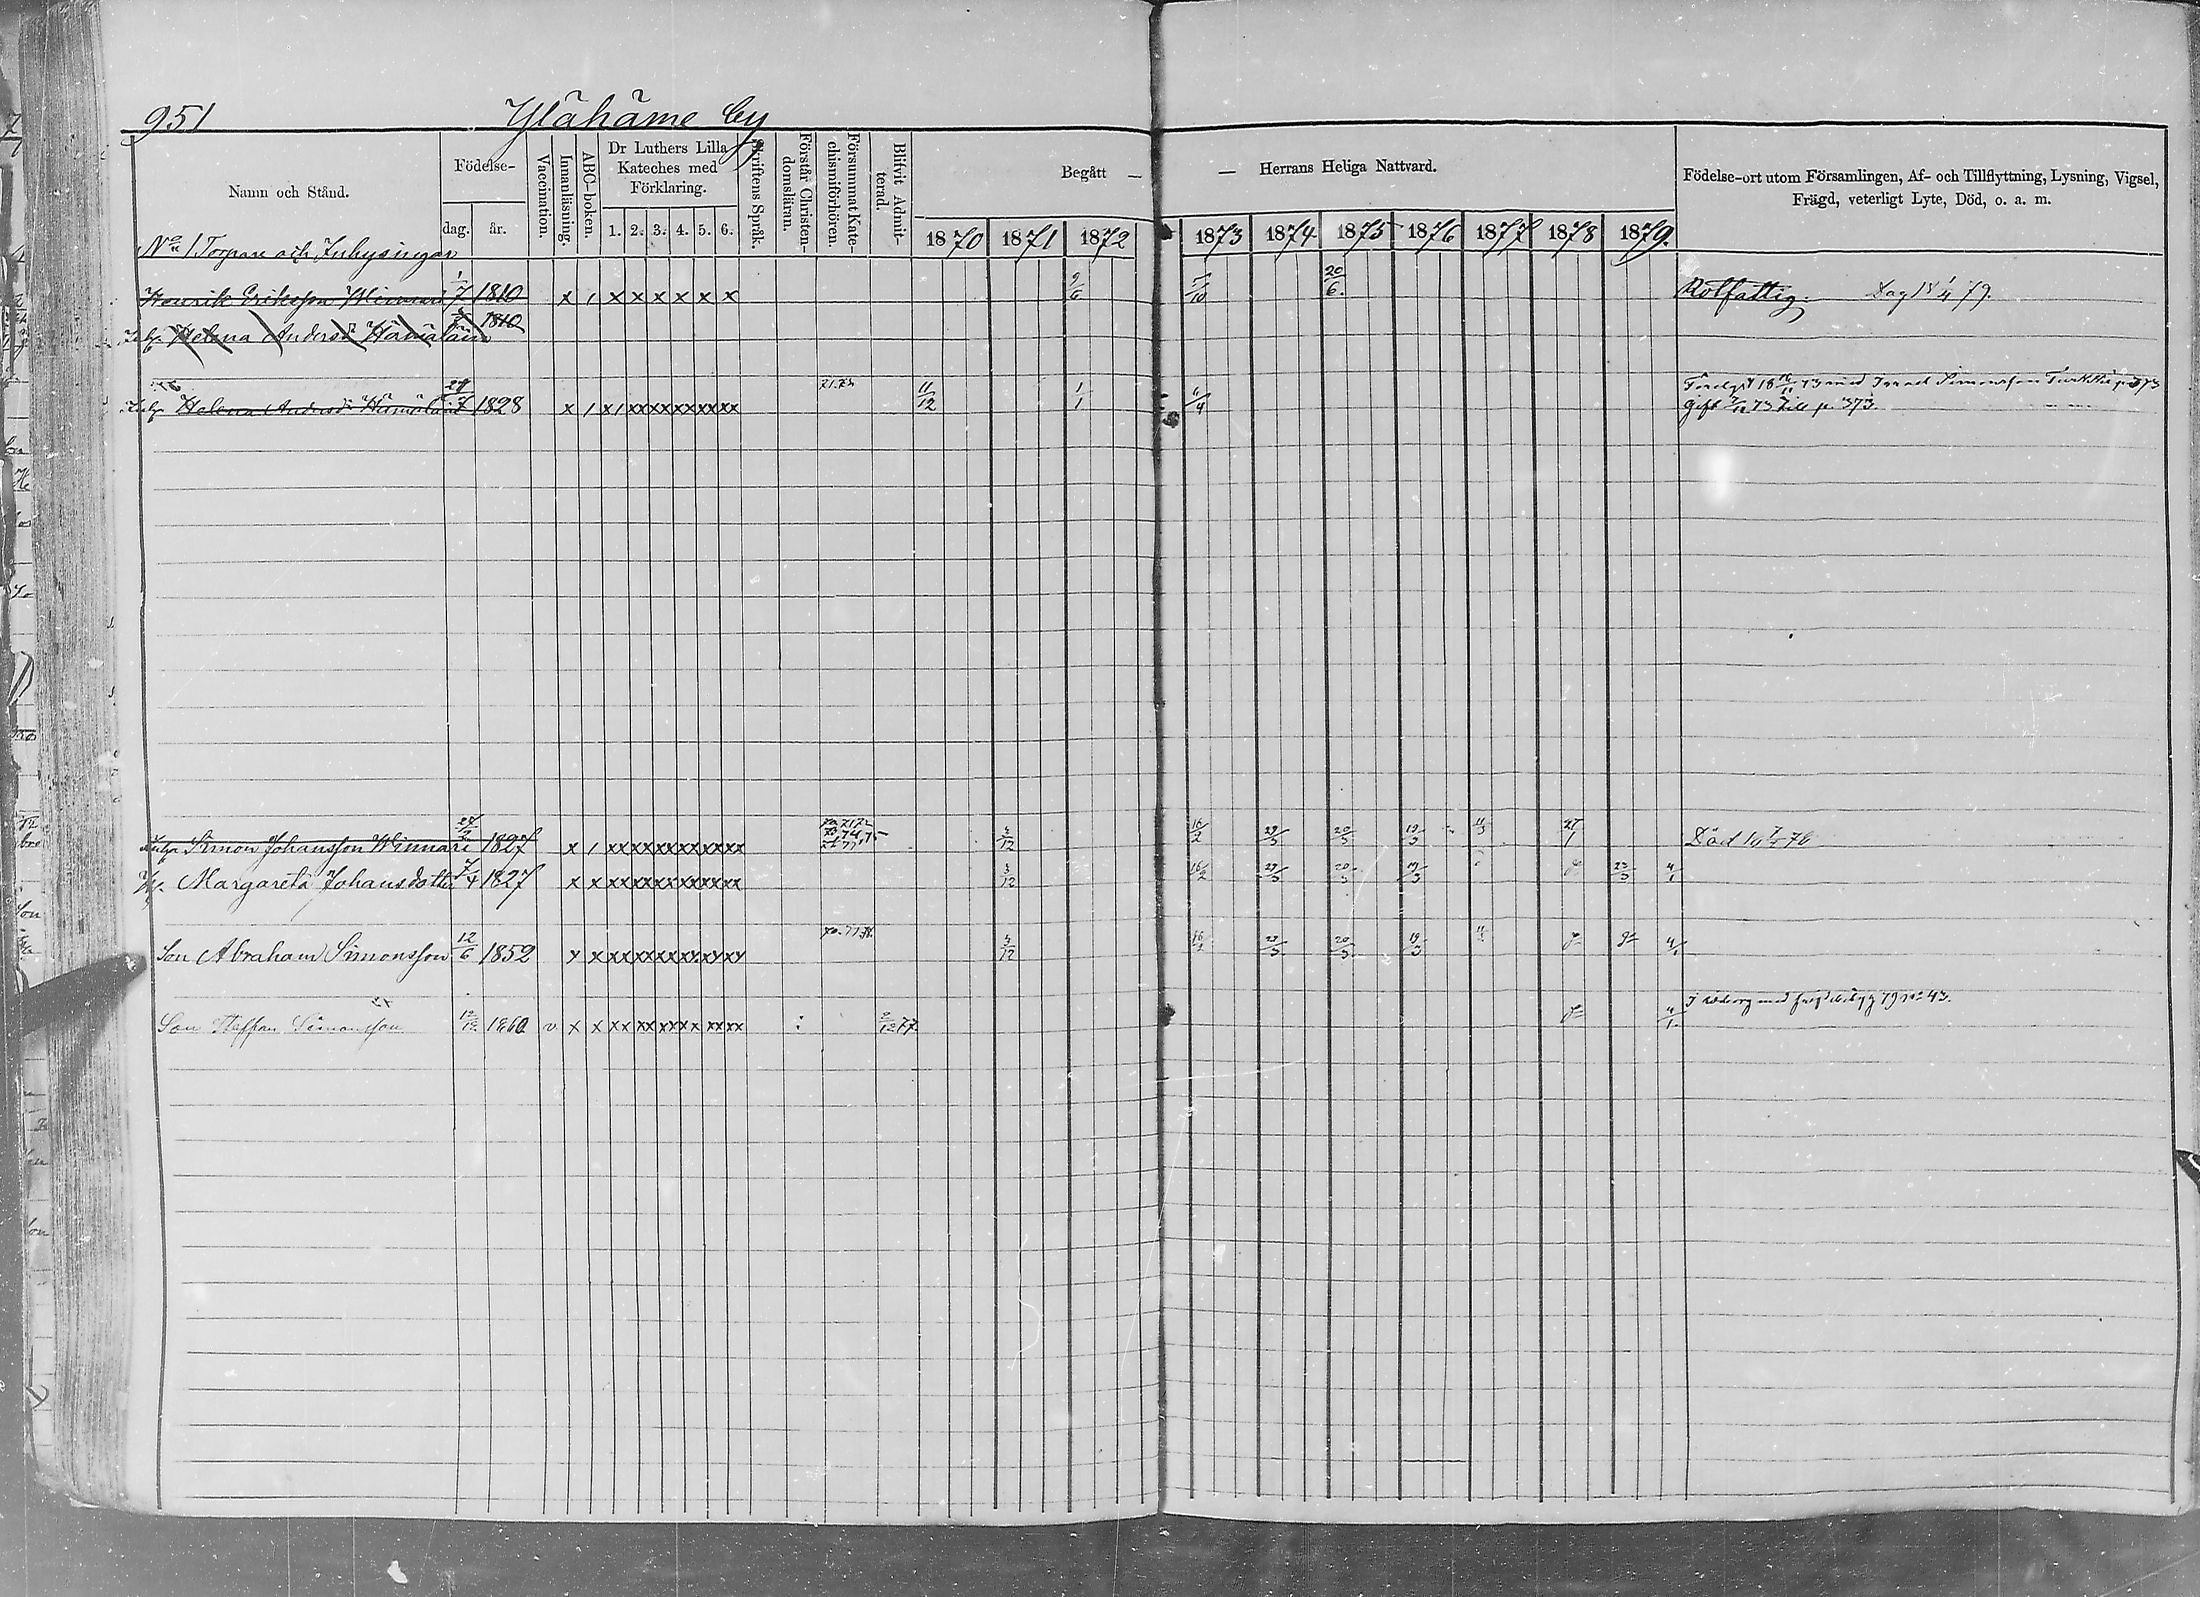 951 Yläháme by
Namn och Stånd.
Födelse-
dag. år.
Vaccination.
Innanläsning.
ABC-boken.
Dr Luthers Lilla
Kateches med
Förklaring.
1. 2. 3. 4. 5. 6.
Skriftens Språk.
Förstår Christen-
domsläran.
Försummat Kate-
chismiförhören.
Blifvit Admit-
terad.
Begått — — Herrans Heliga Nattvard.
1870 1871 1872 1873 1874 1875 1876 1877 1878 1879.
Födelse-ort utom Församlingen, Af- och Tillflyttning, Lysning, Vigsel,
Frägd, veterligt Lyte, Död, o. a. m.
No 1 Torpare och Inhysingar
Henrik Eriksson Winnari 1/7 1810 x 1 x x x x x x 9/6 5/10 20/6. Rotfattig.
Helena Andersdr Hämäläin 1810
Helena Andersdr Hämäläin 1828 x 1 x 1 xx xx xx xx xx 11/12 1/1 6/4
Gift 73 till p. 373.
Simon Johansson Winnari 1827 x 1 xx xx xx xx xx xx 3/12 16/2 29/3 20/3 19/3 11/3 27/1 Död
Margareta Johansdotter 7/4 1827 x x xx xx xx xx xx xx 3/12 16/2 29/3 20/3 19/3 23/3 4/1
Son Abraham Simonsson 12/6 1852 x x xx xx xx xx xx xx 3/12 16/2 29/3 20/3 19/3 11/3 4/1
Son Steffan Simonsson 12/12 1860 v x x xx xx xx xx xx xx 2/12 77 4/1.